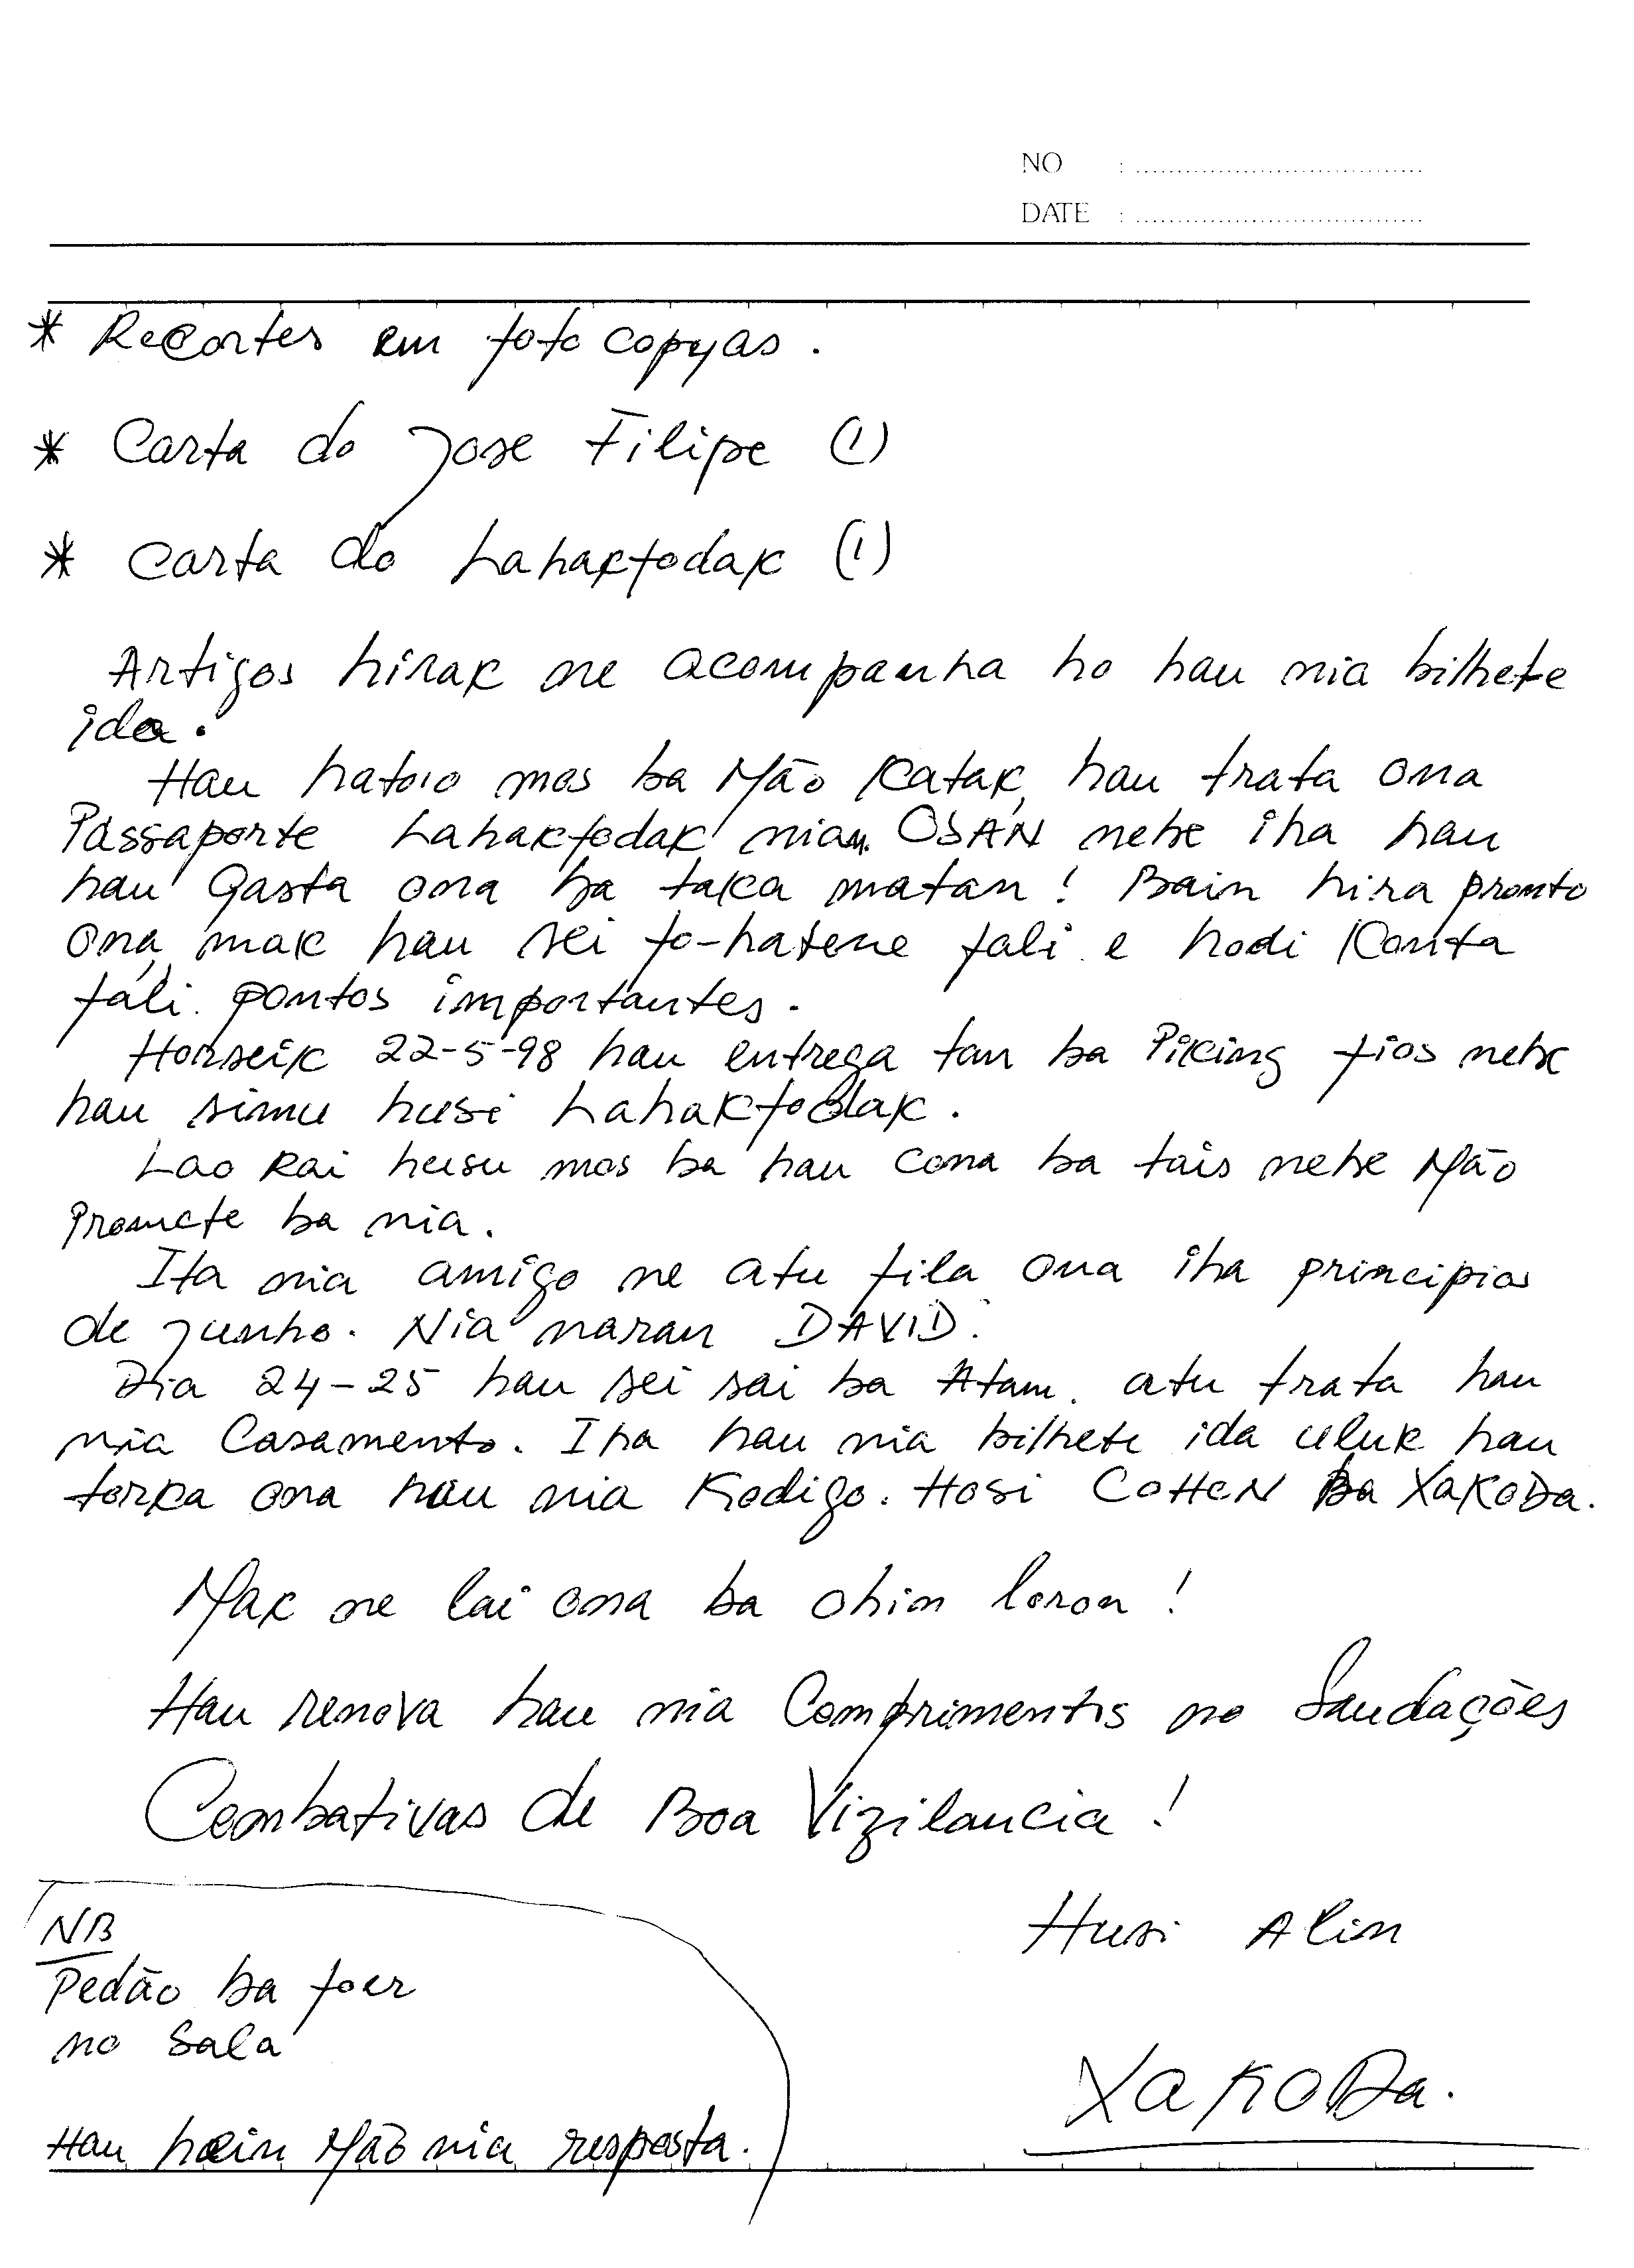 NO : ....................................
DATE : ....................................
* Recortes em foto copyas.
* Carta do Jose Filipe (1)
* Carta do Lahaktodak (1)
Artigos hirak ne acompanha ho hau nia bilhete
ida.
Hau hatoio mos ba Mão Katak, hau trata ona
Passaporte Lahaktodak nian. OSAN nebe iha hau
hau gasta ona ba taka matan! Bain hira pronto
ona, mak hau sei fo-hatene fali e hodi Konta
fali pontos importantes.
Horseik 22-5-98 hau entrega tan ba Piking fios nebe
hau simu husi Lahaktodak.
Lao Rai husu mos ba hau cona ba tais nebe Mão
Promete ba nia.
Ita nia amigo ne atu fila ona iha principios
de Junho. Nia naran DAVID.
Dia 24-25 hau sei sai ba Atam. atu trata hau
nia Casamento. Iha hau nia bilhete ida uluk hau
torka ona hau nia Kodigo. Hosi COHEN Ba XAKODA.
Mak ne lai ona ba ohin loron!
Hau renova hau nia Comprimentos no Saudações
Combativas de Boa Vizilancia!
Husi Alin
XAKODA.
NB
Pedão ba foer
no Sala
Hau hein Mão nia resposta.